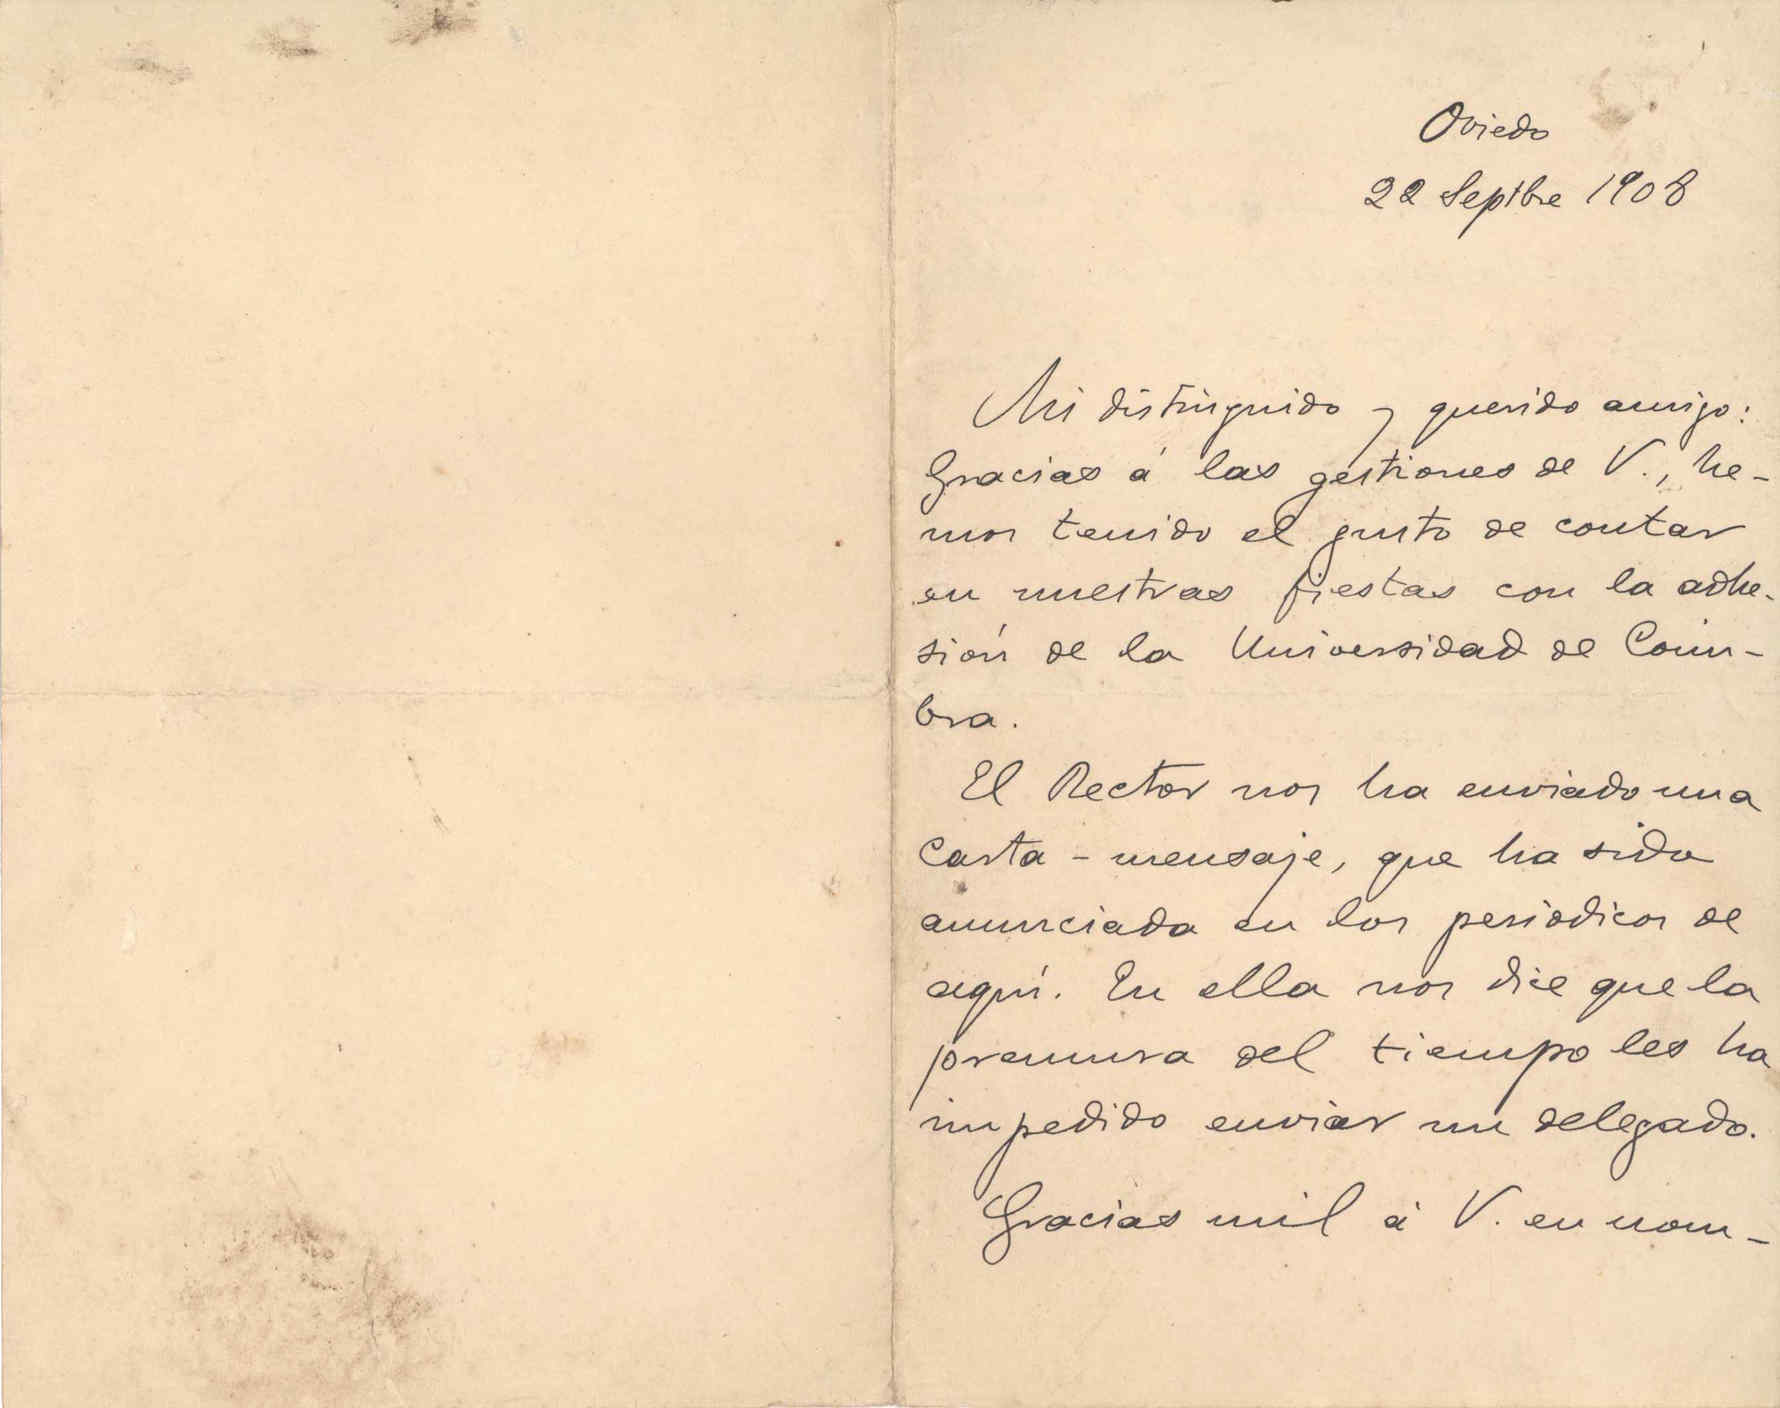 Oviedo
22 Septbre 1908
Mi distinguido y querido amigo:
Gracias á las gestiones de V., he-
mos tenido el gusto de contar
en nuestras fiestas con la adhe-
sión de la Universidad de Coim-
bra.
El Rector nos ha enviado una
carta - mensaje, que ha sido
anunciada en los periodicos de
aquí. En ella nos dice que la
premura del tiempo les ha
impedido enviar un delegado.
Gracias mil á V. en nom-